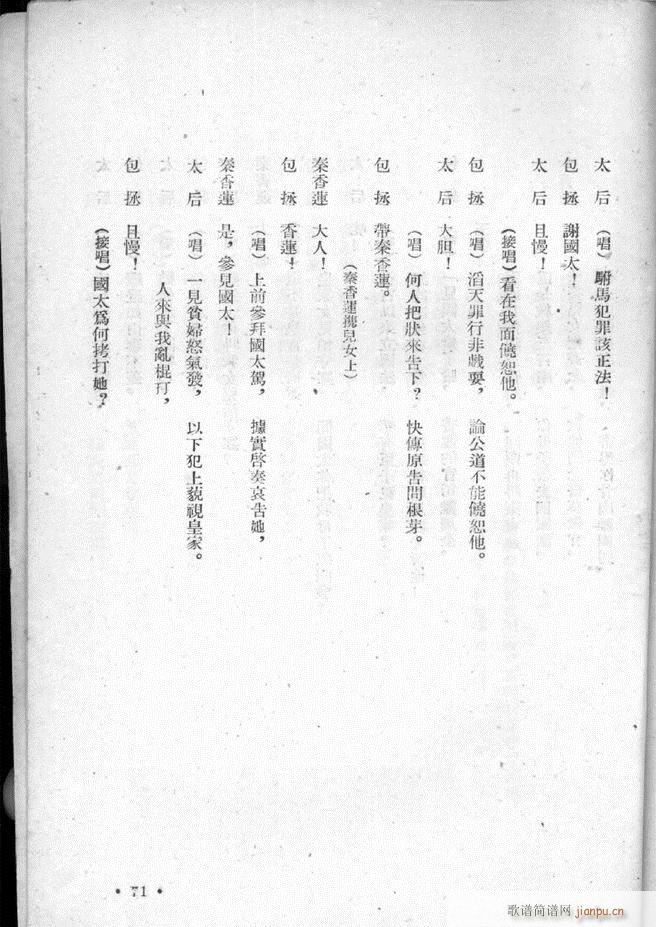 太　后　（唱）駙馬犯罪該正法！
包　拯　謝國太！
太　后　且慢！
（接唱）看在我面饒恕他。
包　拯　（唱）滔天罪行非戲耍，　論公道不能饒恕他。
太　后　大胆！
（唱）何人把狀來告下？　快傳原告問根芽。
包　拯　帶秦香蓮。
（秦香蓮攜兒女上）
秦香蓮　大人！
包　拯　香蓮！
（唱）上前參拜國太駕，　據實啓奏哀告她，
秦香蓮　是，參見國太！
太　后　（唱）一見貧婦怒氣發，　以下犯上藐視皇家。
人來與我亂棍打，
包　拯　且慢！
（接唱）國太爲何拷打她？
• 71 •
歌谱简谱网
jianpu.cn